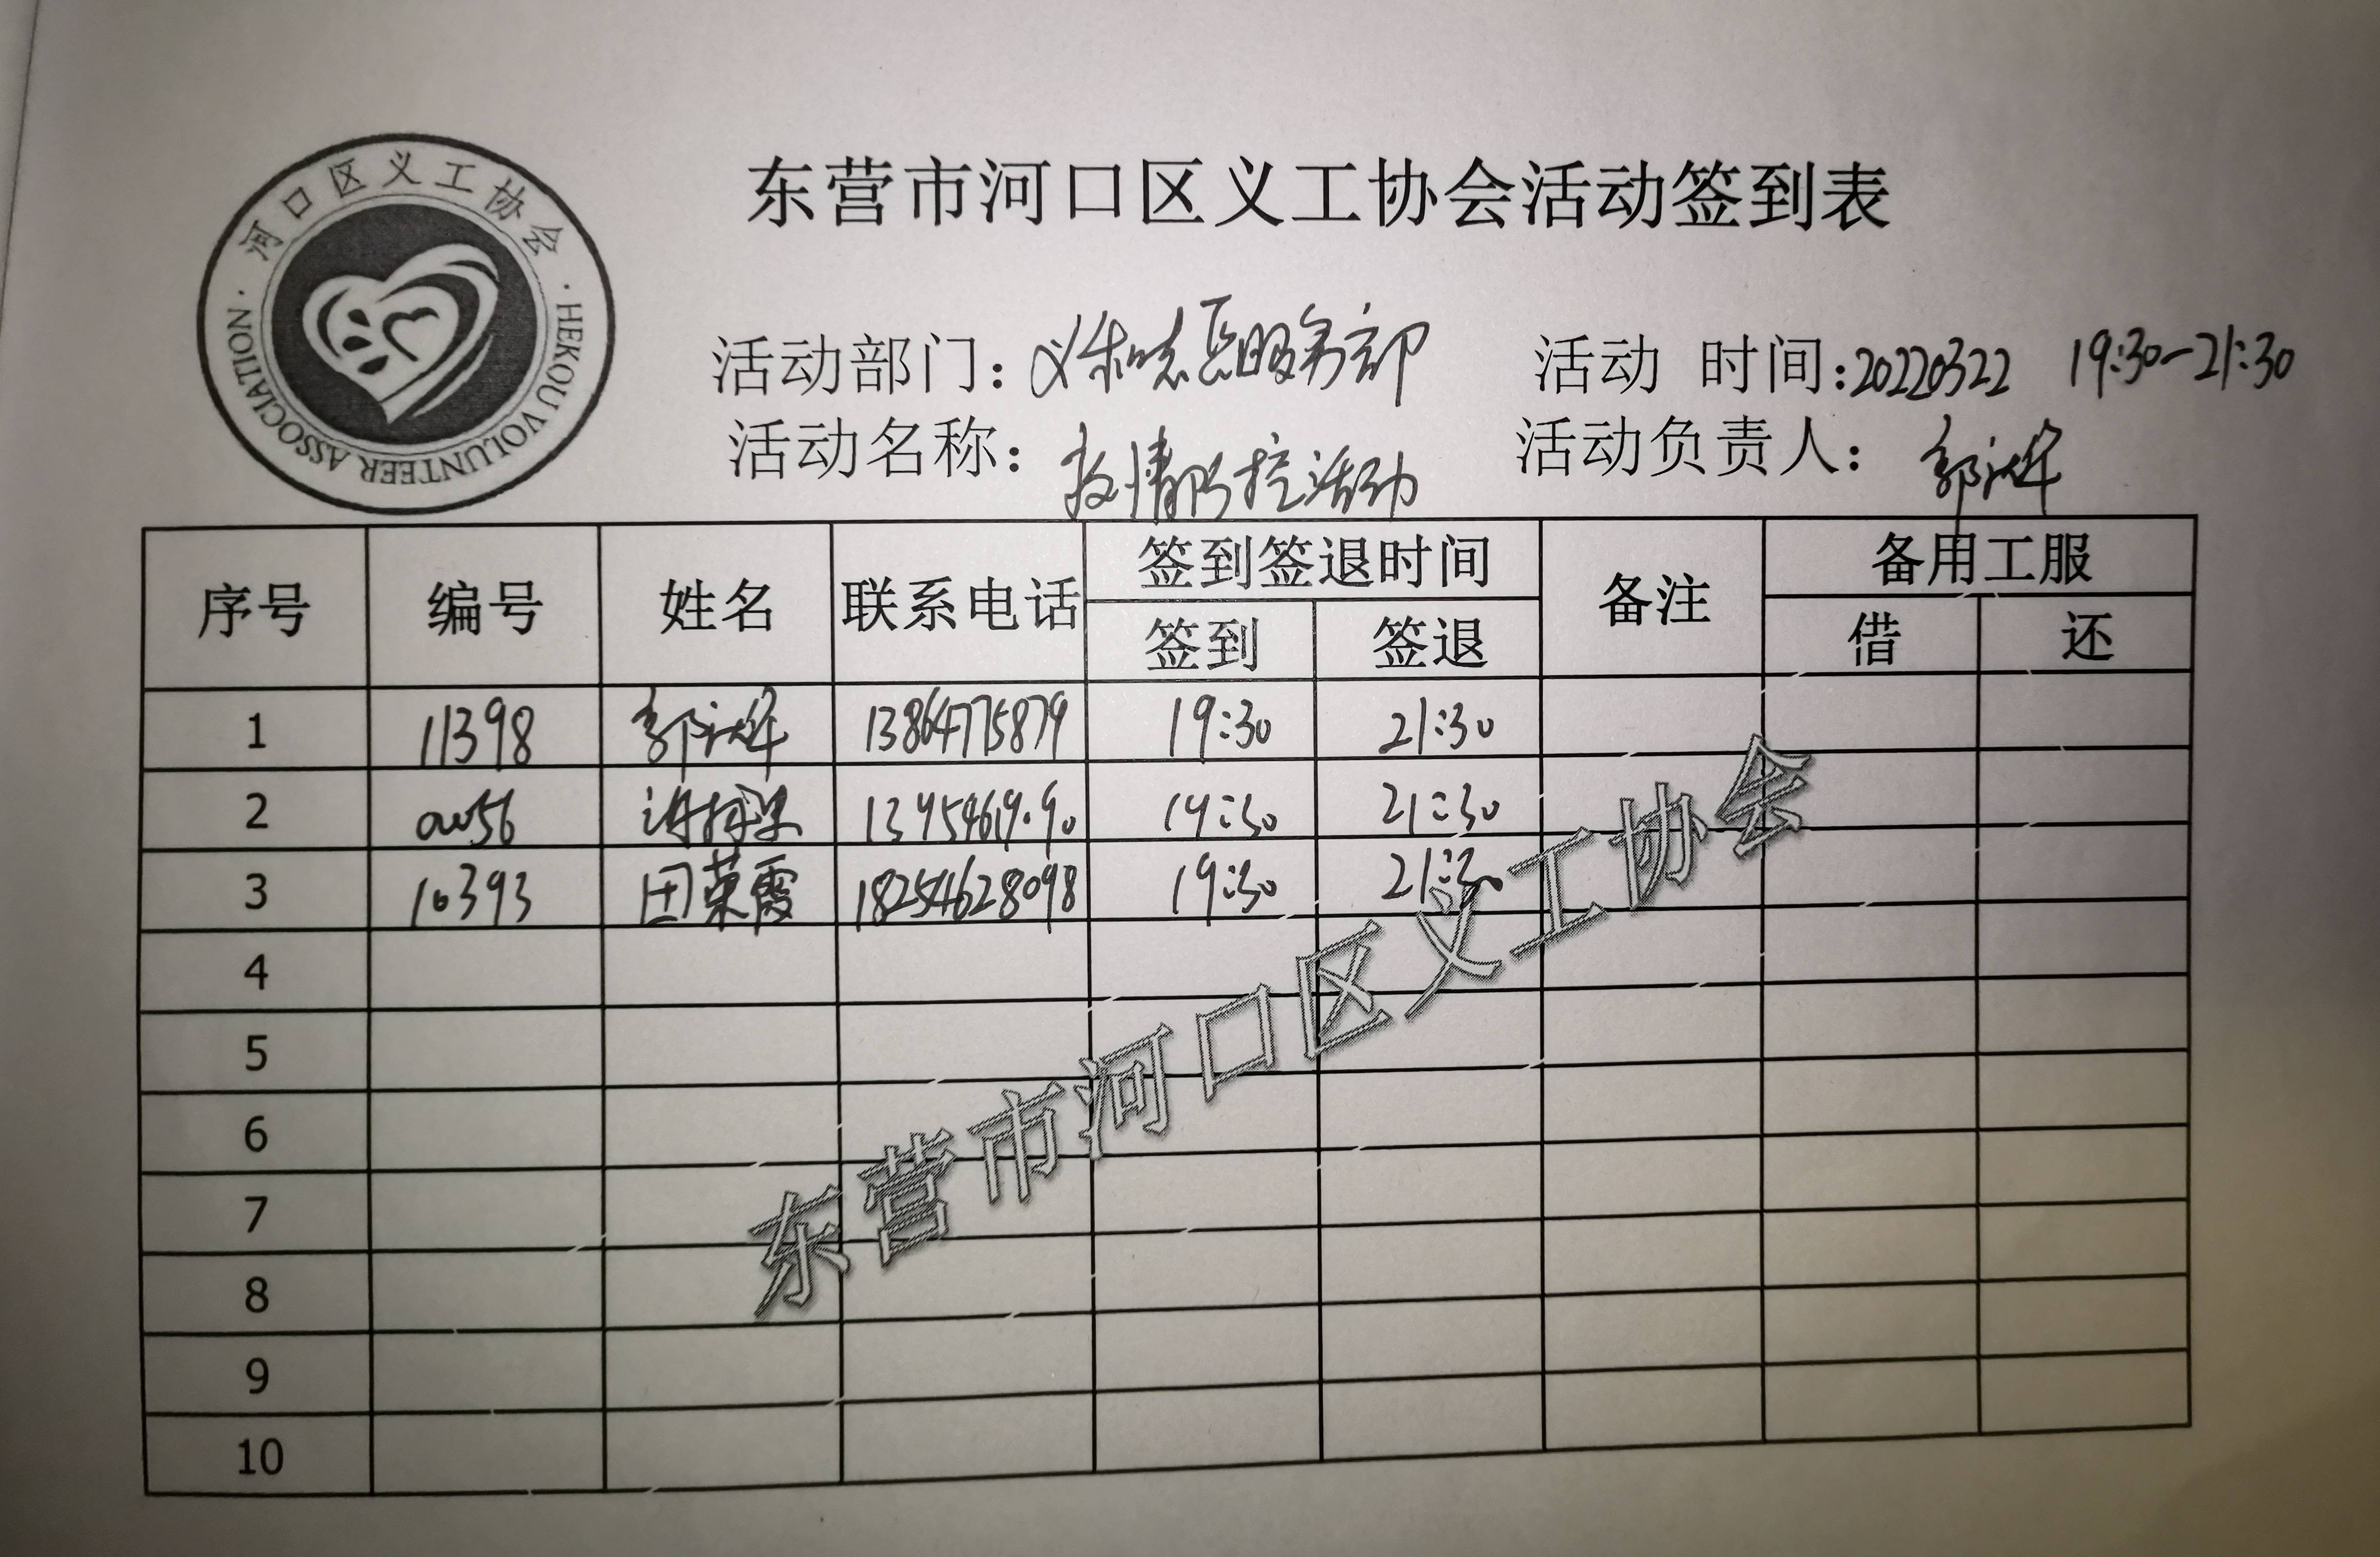 河口区义工协会
HEKOU VOLUNTEER ASSOCIATION
东营市河口区义工协会活动签到表
活动部门：义和志愿服务部 活动 时间：20220322 19:30-21:30
活动名称：疫情防控活动 活动负责人：郭
序号 编号 姓名 联系电话 签到签退时间 备注 备用工服
签到 签退 借 还
1 11398 郭 13864775879 19:30 21:30
2 00056 19:30 21:30
3 10393 田荣霞 18254628098 19:30 21:30
4
5
6
7
8
9
10
东营市河口区义工协会